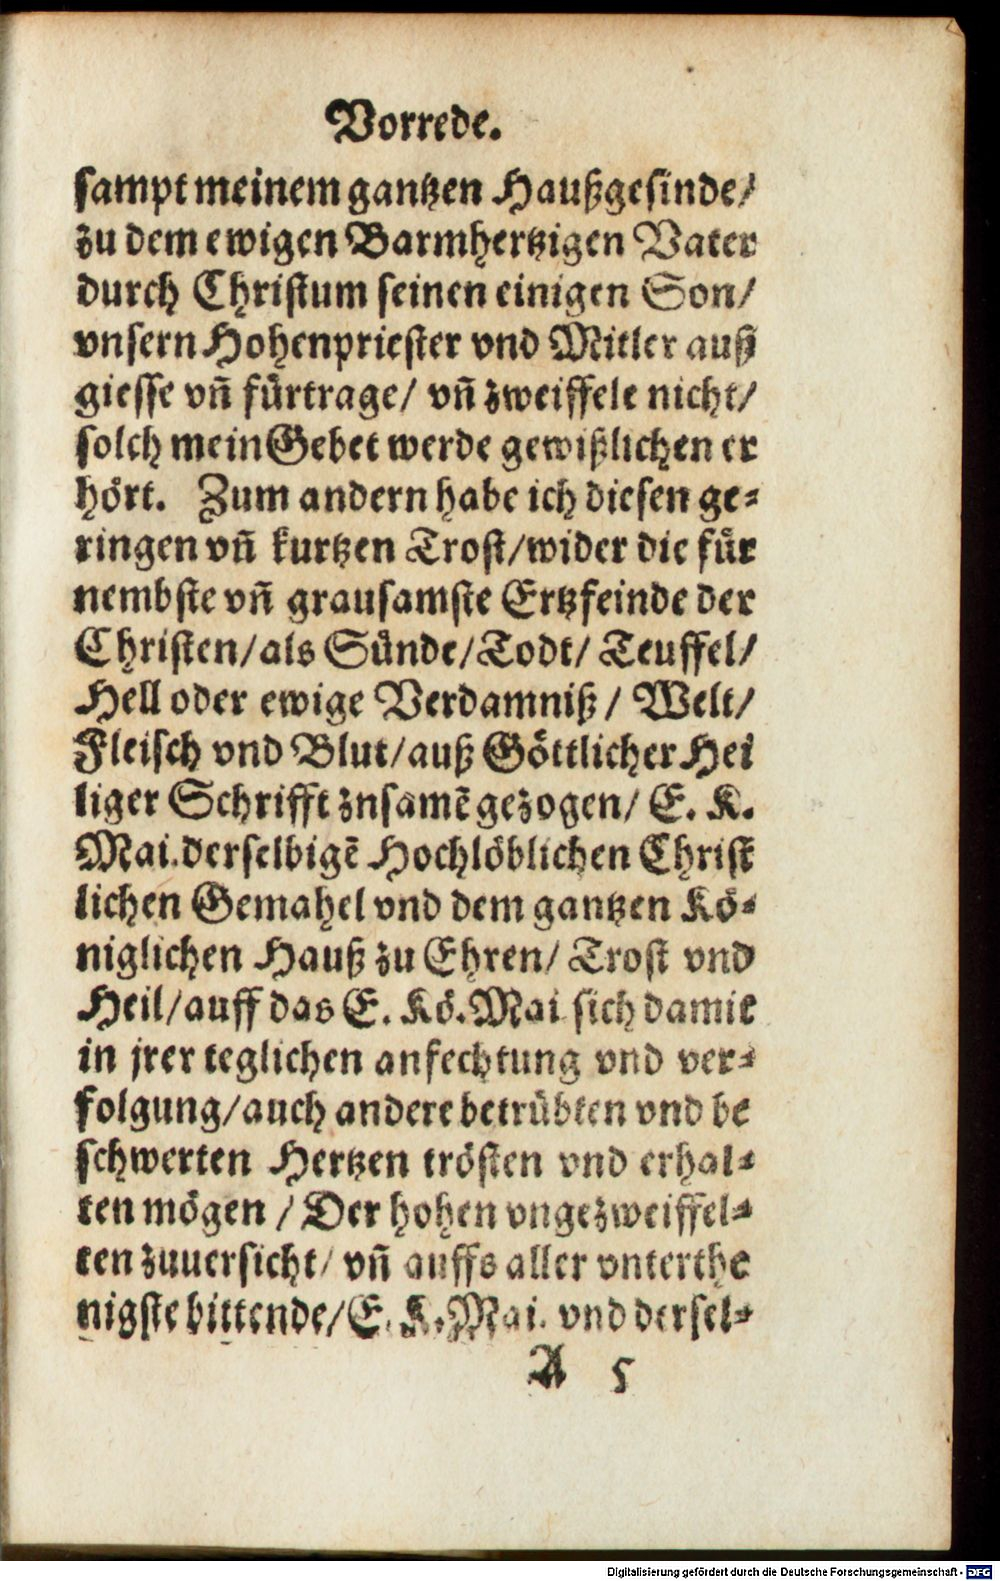 Vorrede.
sampt meinem gantzen Haußgesinde/
zu dem ewigen Barmhertzigen Vater
durch Christum seinen einigen Son/
vnsern Hohenpriester vnd Mitler auß
giesse vn̄ fürtrage/ vn̄ zweiffele nicht/
solch mein Gebet werde gewißlichen er
hört. Zum andern habe ich diesen ge-
ringen vn̄ kurtzen Trost/wider die für
nembste vn̄ grausamste Ertzfeinde der
Christen/als Sünde/Todt/ Teuffel/
Hell oder ewige Verdamniß/ Welt/
Fleisch vnd Blut/auß Göttlicher Hei
liger Schrifft znsamē gezogen/ E. K.
Mai.derselbigē Hochlöblichen Christ
lichen Gemahel vnd dem gantzen Kö-
niglichen Hauß zu Ehren/ Trost vnd
Heil/auff das E. Kö. Mai sich damit
in jrer teglichen anfechtung vnd ver-
folgung/auch andere betrübten vnd be
schwerten Hertzen trösten vnd erhal-
ten mögen / Der hohen vngezweiffel-
ten zuuersicht/ vn̄ auffs aller vnterthe
nigste bittende/E. K. Mai. vnd dersel-
A 5
Digitalisierung gefördert durch die Deutsche Forschungsgemeinschaft - DFG